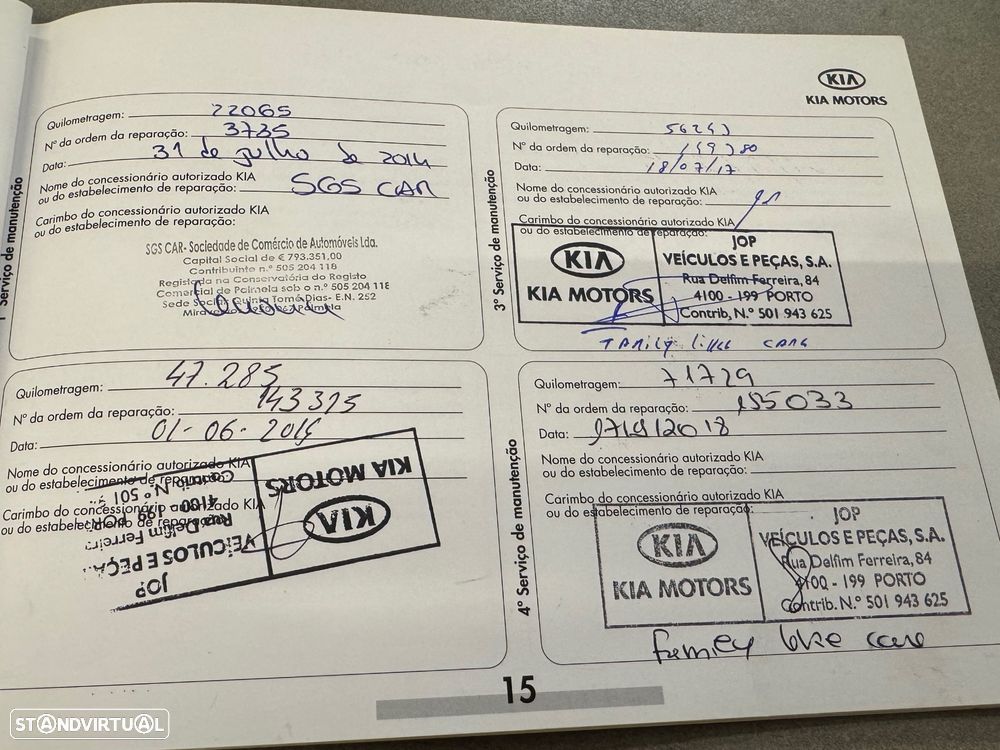 KIA
KIA MOTORS
1º Serviço de manutenção
Quilometragem: 22065
Nº da ordem da reparação: 3735
Data: 31 de julho de 2014
Nome do concessionário autorizado KIA
ou do estabelecimento de reparação: SGS CAR
Carimbo do concessionário autorizado KIA
ou do estabelecimento de reparação:
SGS CAR- Sociedade de Comércio de Automóveis Lda.
Capital Social de € 793.351,00
Contribuinte n.º 505 204 118
Registada na Conservatória do Registo
Comercial de Palmela sob o n.º 505 204 118
Sede Social: Quinta Tomé Dias- E.N. 252
Palmela
Quilometragem: 47.285
Nº da ordem da reparação: 143325
Data: 01-06-
Nome do concessionário autorizado KIA
ou do estabelecimento de reparação:
Carimbo do concessionário autorizado KIA
ou do estabelecimento de reparação:
KIA
KIA MOTORS
JOP
VEÍCULOS E PEÇA
Rua Delfim Ferreir
4100 - 199 POR
Contrib. N.º 501
3º Serviço de manutenção
Quilometragem: 56243
Nº da ordem da reparação:
Data: 18/07/17
Nome do concessionário autorizado KIA
ou do estabelecimento de reparação:
Carimbo do concessionário autorizado KIA
ou do estabelecimento de reparação:
KIA
KIA MOTORS
JOP
VEÍCULOS E PEÇAS, S.A.
Rua Delfim Ferreira, 84
4100 - 199 PORTO
Contrib, N.º 501 943 625
Family like care
4º Serviço de manutenção
Quilometragem: 71729
Nº da ordem da reparação: 155033
Data:
Nome do concessionário autorizado KIA
ou do estabelecimento de reparação:
Carimbo do concessionário autorizado KIA
ou do estabelecimento de reparação:
KIA
KIA MOTORS
JOP
VEÍCULOS E PEÇAS, S.A.
Rua Delfim Ferreira, 84
4100 - 199 PORTO
Contrib. N.º 501 943 625
family like care
15
STANDVIRTUAL